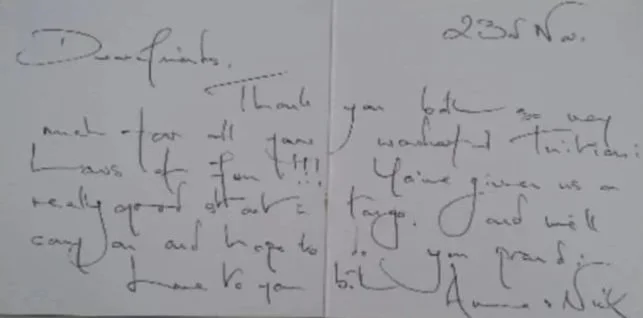 23rd Nov.
Dear friends,
Thank you both so very
much for all your wonderful tuition:
hours of fun!!! You've given us a
really good start in tango. and we'll
carry on and hope to do you proud:-
Love to you both
Anne & Nick